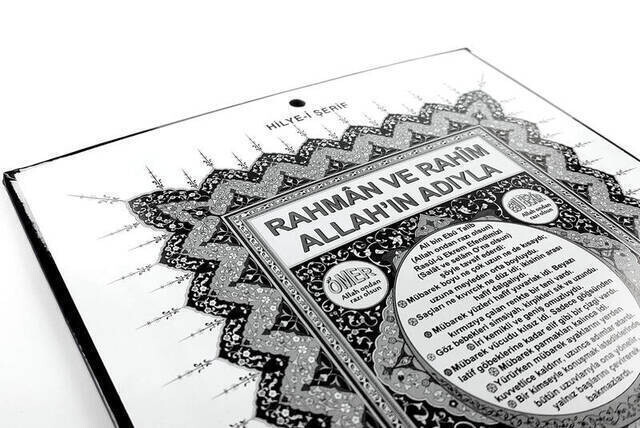 HİLYE-İ ŞERİF
RAHMÂN VE RAHÎM
ALLAH'IN ADIYLA
ÖMER
Allah ondan
razı olsun
Allah ondan
razı olsun
Ali bin Ebû Talib
(Allah ondan razı olsun)
Resûl-i Ekrem Efendimizi
(Salât ve selâm O'na olsun)
şöyle tarif ederdi:
Mübarek boyu ne çok uzun ne de kısaydı;
uzuna meyleden orta boyluydu.
Saçları ne kıvırcık ne düz idi; ikisinin arası
hafif dalgalıydı.
Mübarek yüzleri hafif yuvarlak idi. Beyaz
kırmızıya çalan renkte bir teni vardı.
Göz bebekleri simsiyah, kirpikleri sık ve uzundu.
İri kemikli ve geniş omuzluydu.
Mübarek vücudu kılsız idi. Sadece göğsünden
latif göbeklerine kadar elif gibi bir çizgi vardı
Mübarek parmakları kalınca idi.
Yürürken mübarek ayaklarını yerden
kuvvetlice kaldırır, uzunca adımlar
Bir kimseyle konuşmak istediklerinde
bütün uzuvlarıyla ona yönelir,
yalnız başlarını çevirerek
bakmazlardı.